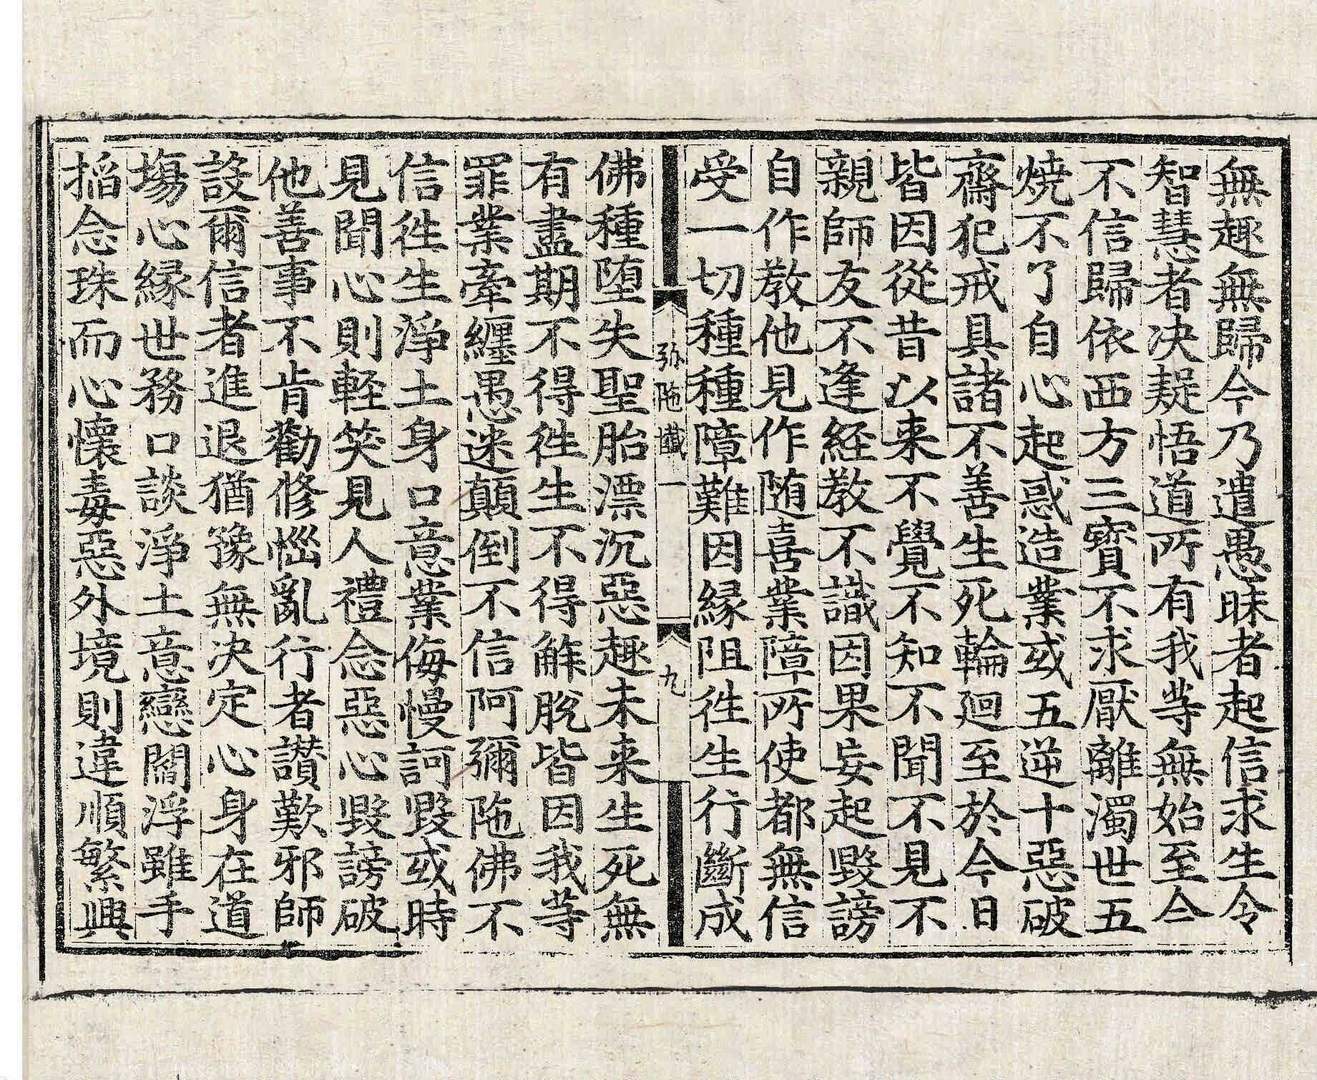 無趣無歸今乃遣愚昧者起信求生令
智慧者决疑悟道所有我等無始至今
不信歸依西方三寳不求厭離濁世五
燒不了自心起惑造業或五逆十惡破
齋犯戒具諸不善生死輪廻至於今日
皆因從昔以来不覺不知不聞不見不
親師友不逢経教不識因果妄起毀謗
自作教他見作随喜業障所使都無信
受一切種種障難因縁阻徃生行斷成
弥陁懺一
九
佛種堕失聖胎漂沉惡趣未来生死無
有盡期不得徃生不得解脫皆因我等
罪業牽纏愚迷顛倒不信阿彌陁佛不
信徃生淨土身口意業侮慢訶毀或時
見聞心則軽笑見人禮念惡心毀謗破
他善事不肯勸修惱亂行者讃歎邪師
設爾信者進退猶豫無决定心身在道
塲心縁世務口談淨土意戀閻浮雖手
搯念珠而心懷毒惡外境則違順繁興